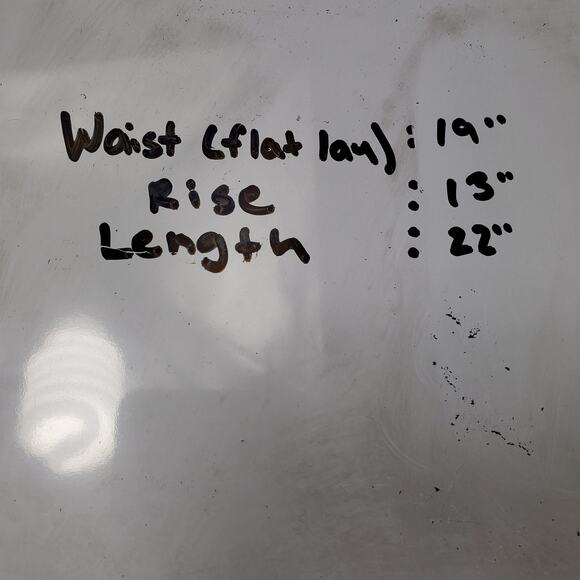 Waist (flat lay) : 19"
Rise : 13"
Length : 22"